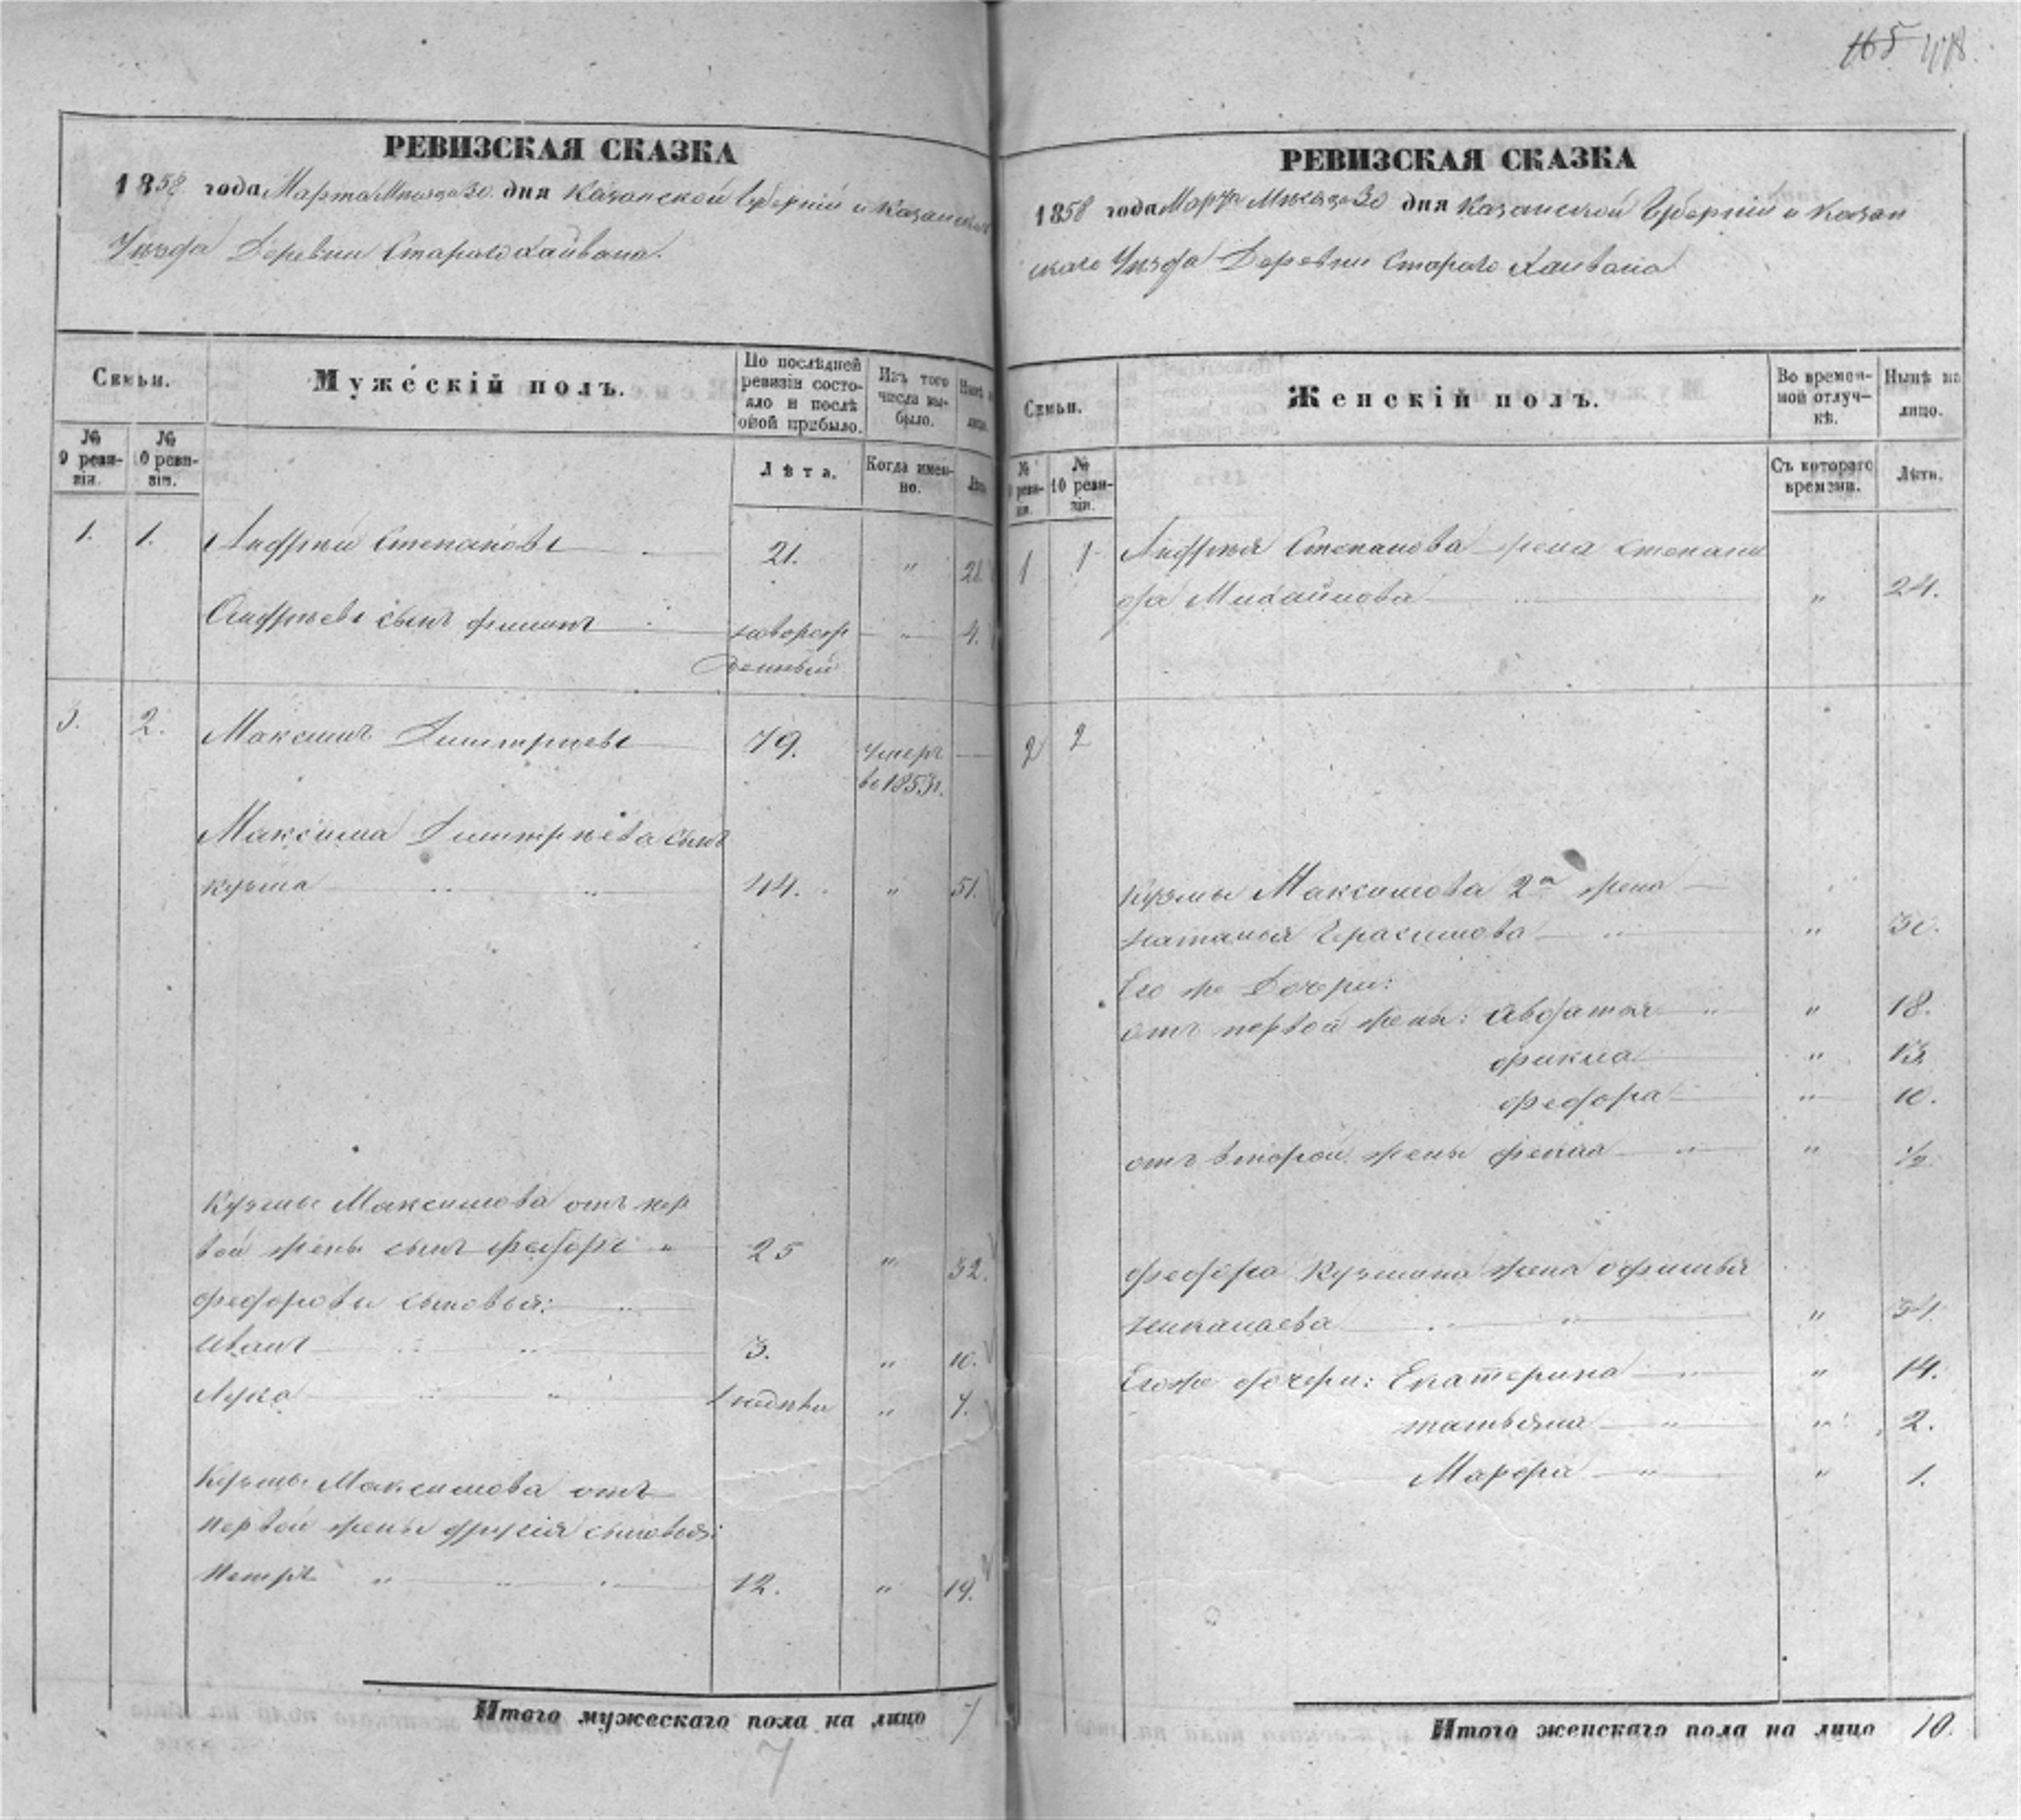 165 418.
РЕВИЗСКАЯ СКАЗКА
1858 года Марта Мѣсяца 30 дня Казанской Губерніи и Казанскаго
Уѣзда Деревни Стараго
Семьи.
Мужескій полъ.
По послѣдней ревизіи состояло и послѣ оной прибыло.
Изъ того числа выбыло.
Нынѣ на лицо.
№ 9 ревизіи.
№ 10 ревизіи.
Лѣта.
Когда именно.
Лѣта
1. 1. Андрей Степановъ 21. " 21
Андреевъ сынъ Филипъ новорож " 4.
денный
3. 2. Максимъ Димитріевъ 79. умеръ
въ 1853 г.
Максима Димитріева сынъ
Кузьма 44. " 51.
Кузьмы Максимова отъ пер
вой жены сынъ Федоръ " 25 " 32.
Федоровы сыновья:
Иванъ 3. " 10.
Лука " 7.
Кузьмы Максимова отъ
первой жены другія сыновья:
Петръ 12. " 19.
Итого мужескаго пола на лицо 7
7
РЕВИЗСКАЯ СКАЗКА
1858 года Марта Мѣсяца 30 дня Казанской Губерніи и Казан
скаго Уѣзда Деревни Стараго
Семьи.
Женскій полъ.
Во временной отлучкѣ.
Нынѣ на лицо.
№ 9 ревизіи.
№ 10 ревизіи.
Съ котораго времени.
Лѣта.
1 1 Андрея Степанова жена Степани
да Михайлова " 24.
2 2
Кузьмы Максимова 2я жена
Наталья Герасимова " 30.
Его же Дочери:
отъ первой жены: Авдотья " 18.
Фикла " 13
Федора " 10.
отъ второй жены Фекла " 1/2
Федора Кузьмина жена Офимья
Николаева " 34.
Его же дочери: Екатерина " 14.
Татьяна " 2.
Марфа " 1.
Итого женскаго пола на лицо 10.